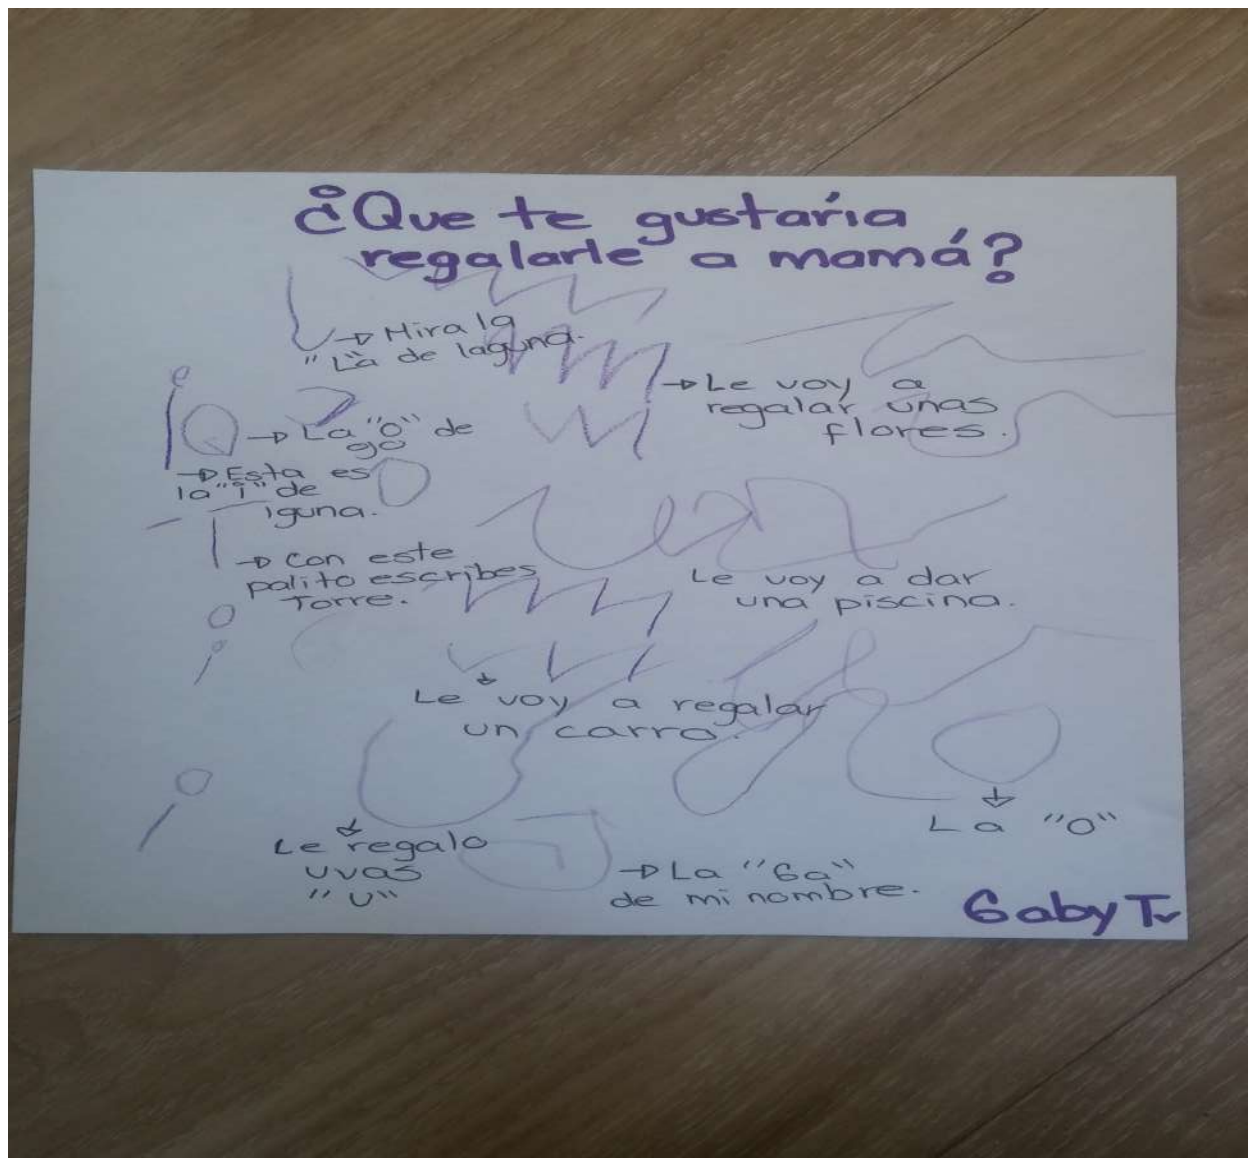 ¿Que te gustaría
regalarle a mamá?
→ Mira la
"L"a de laguna.
→ Le voy a
regalar unas
flores.
→ La "O" de
ojo
→ Esta es
la "i" de
iguna.
→ Con este
palito escribes
Torre.
Le voy a dar
una piscina.
Le voy a regalar
un carro.
La "O"
Le regalo
uvas
"U"
→ La "Ga"
de mi nombre.
Gaby Tv